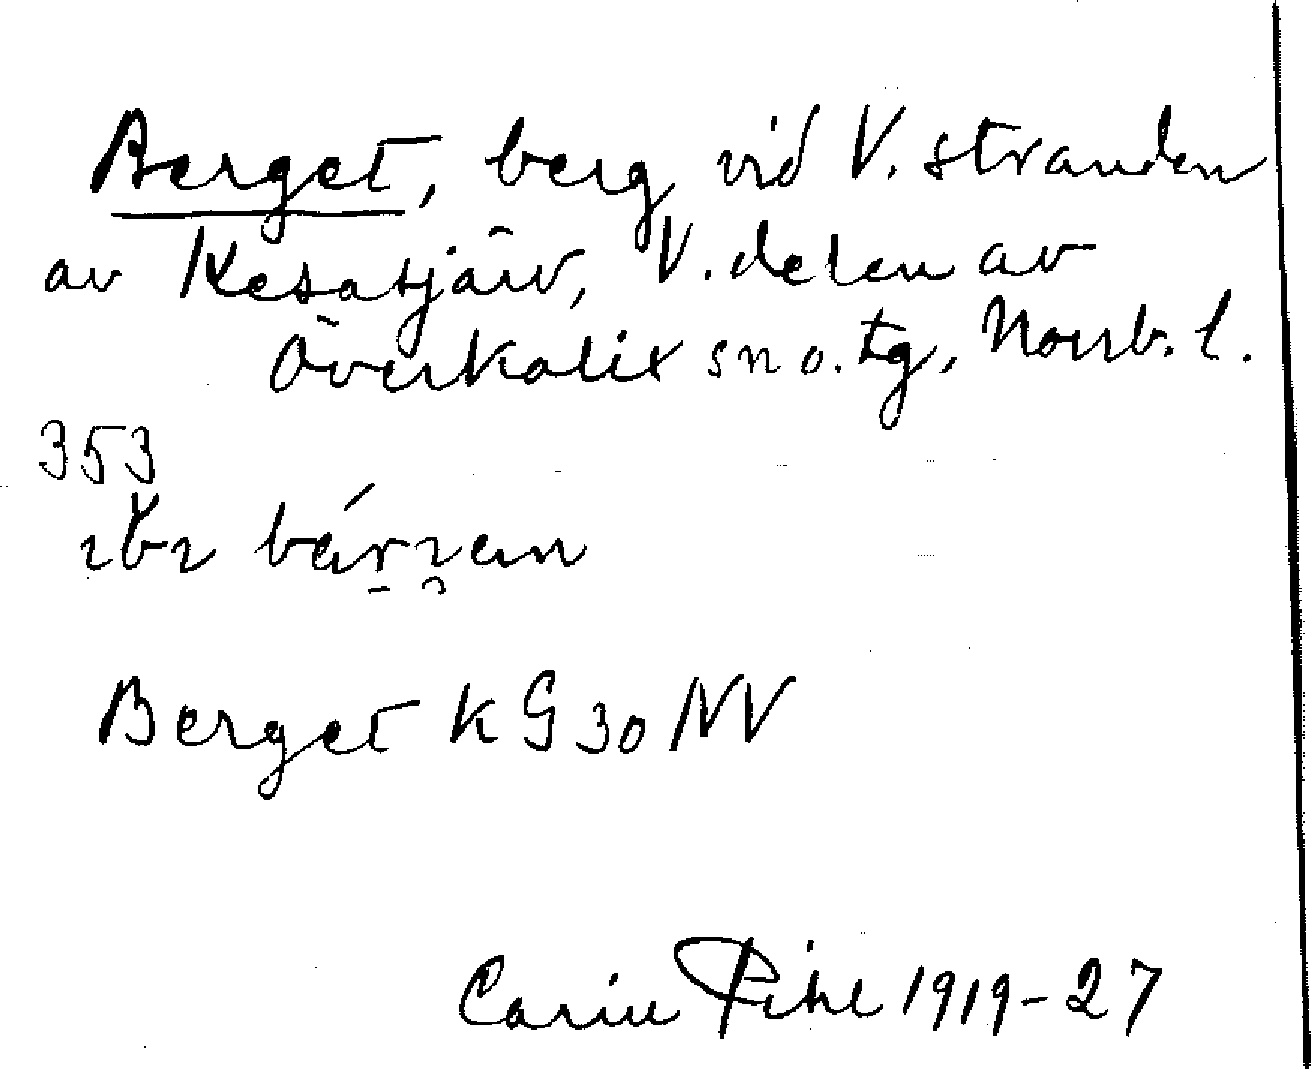 Berget, berg vid V. stranden
av Kesasjärv, V. delen av
Överkalix sn o. tg, Norrb. l.
353
Berget K G 30 NV
Carin Pihl 1919-27